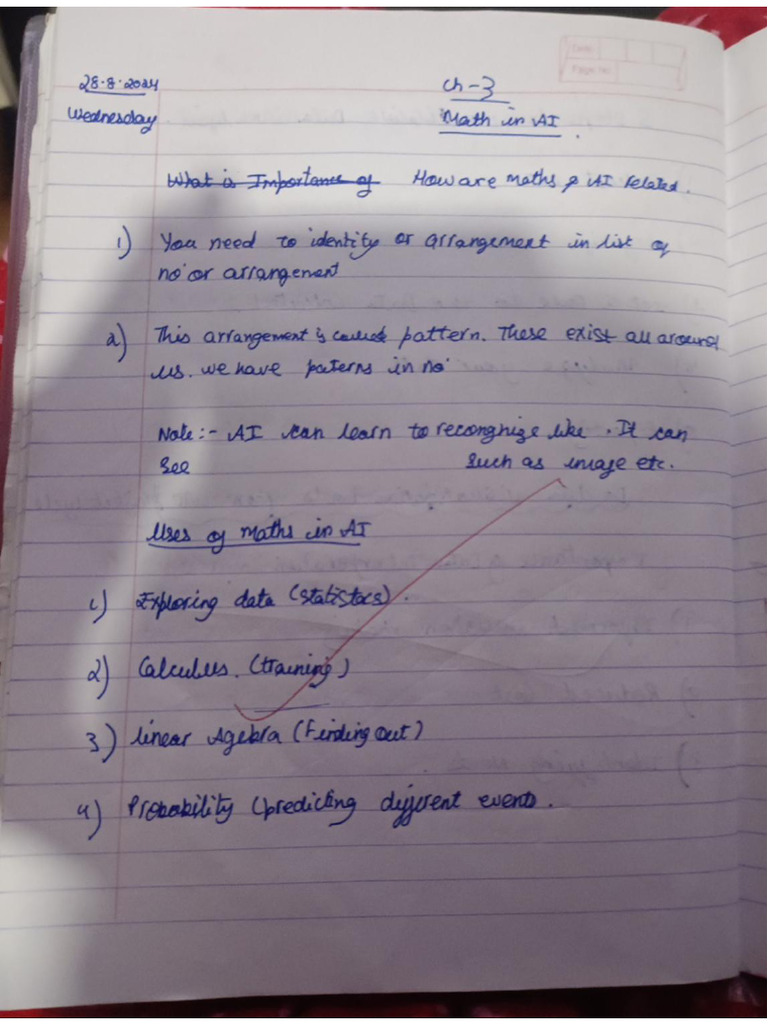 Date
Page No.
28.8.2024
Ch-3
Wednesday
Math in AI.
What is Importance of How are maths & AI related.
1) You need to identity or arrangement in list of
no or arrangement
2) This arrangement is called pattern. These exist all around
us. we have paterns in no.
Note:- AI can learn to recongnize like. It can
see such as image etc.
Uses of maths in AI
1) Exploring data (statistacs).
2) Calculus. (training)
3) linear Agebra (Finding out)
4) Probability (predicting different events.